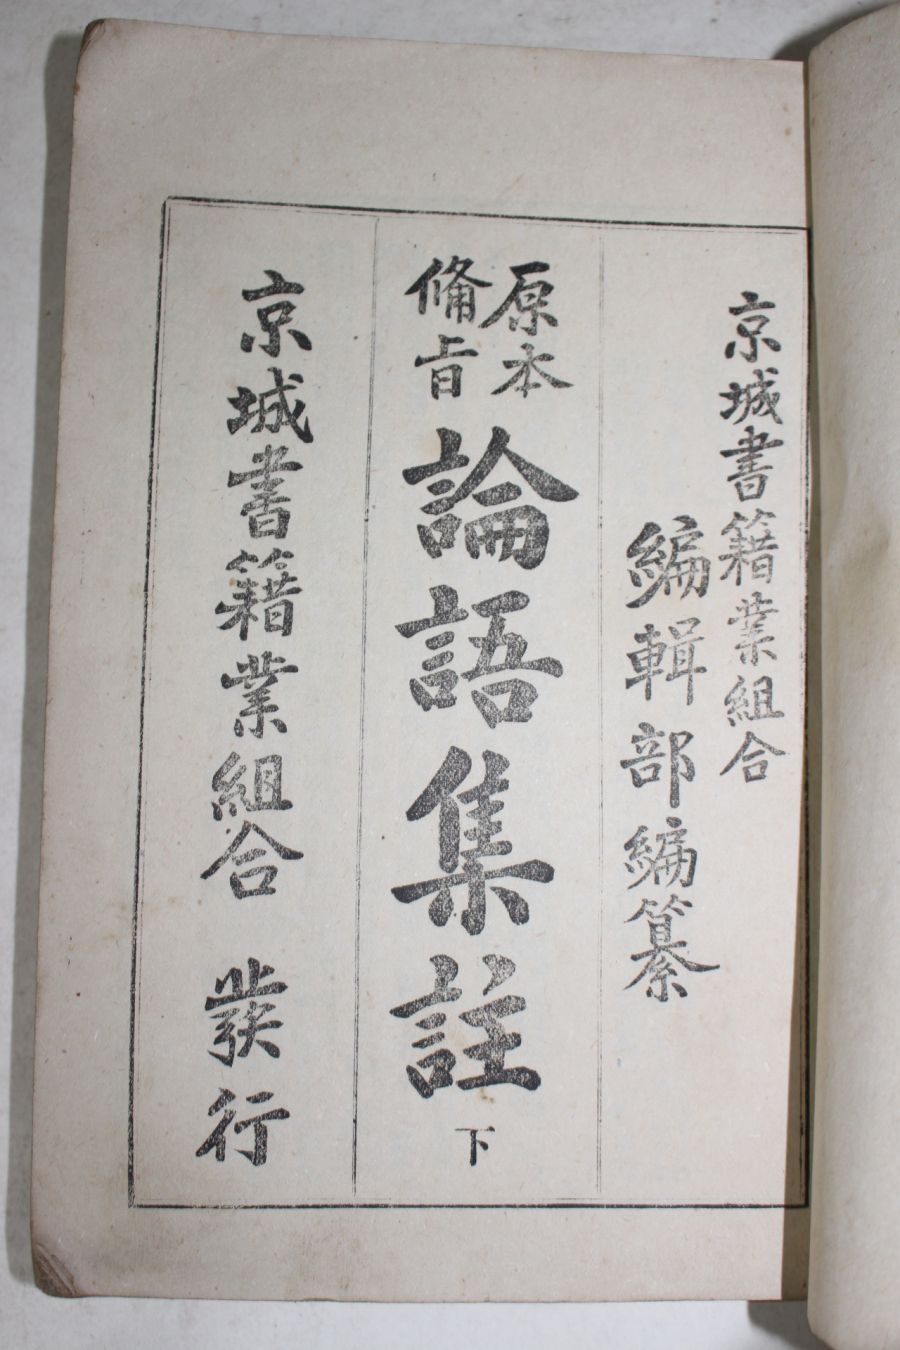 京城書籍業組合
編輯部編纂
原本
備旨
論語集註 下
京城書籍業組合 發行